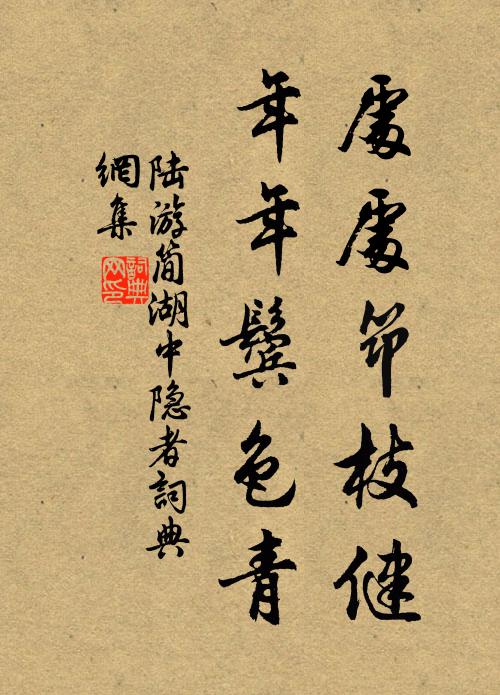 處處筇枝健
年年鬢色青
陆游简湖中隐者詞典
網集
詞典
网印